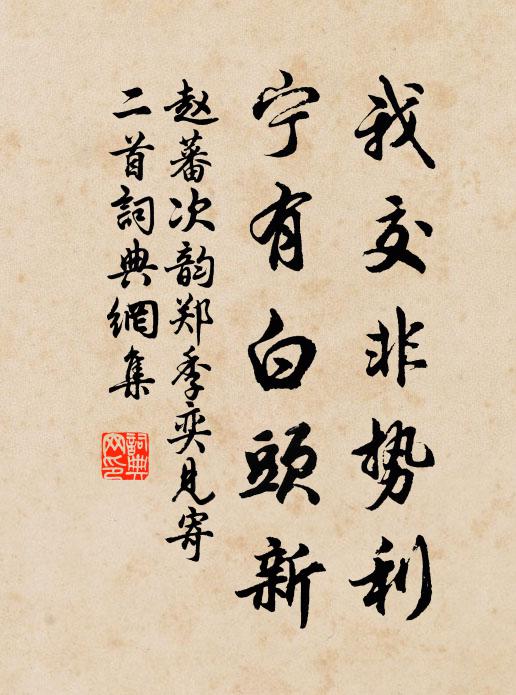 我交非势利
宁有白頭新
赵蕃次韵郑季奕见寄
二首詞典網集
詞典
网印